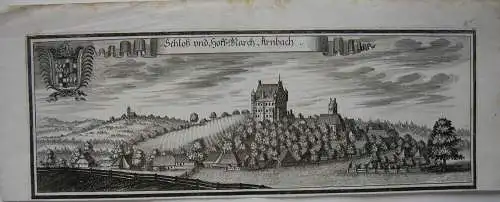 Schloß und Hoff-March Arnbach.